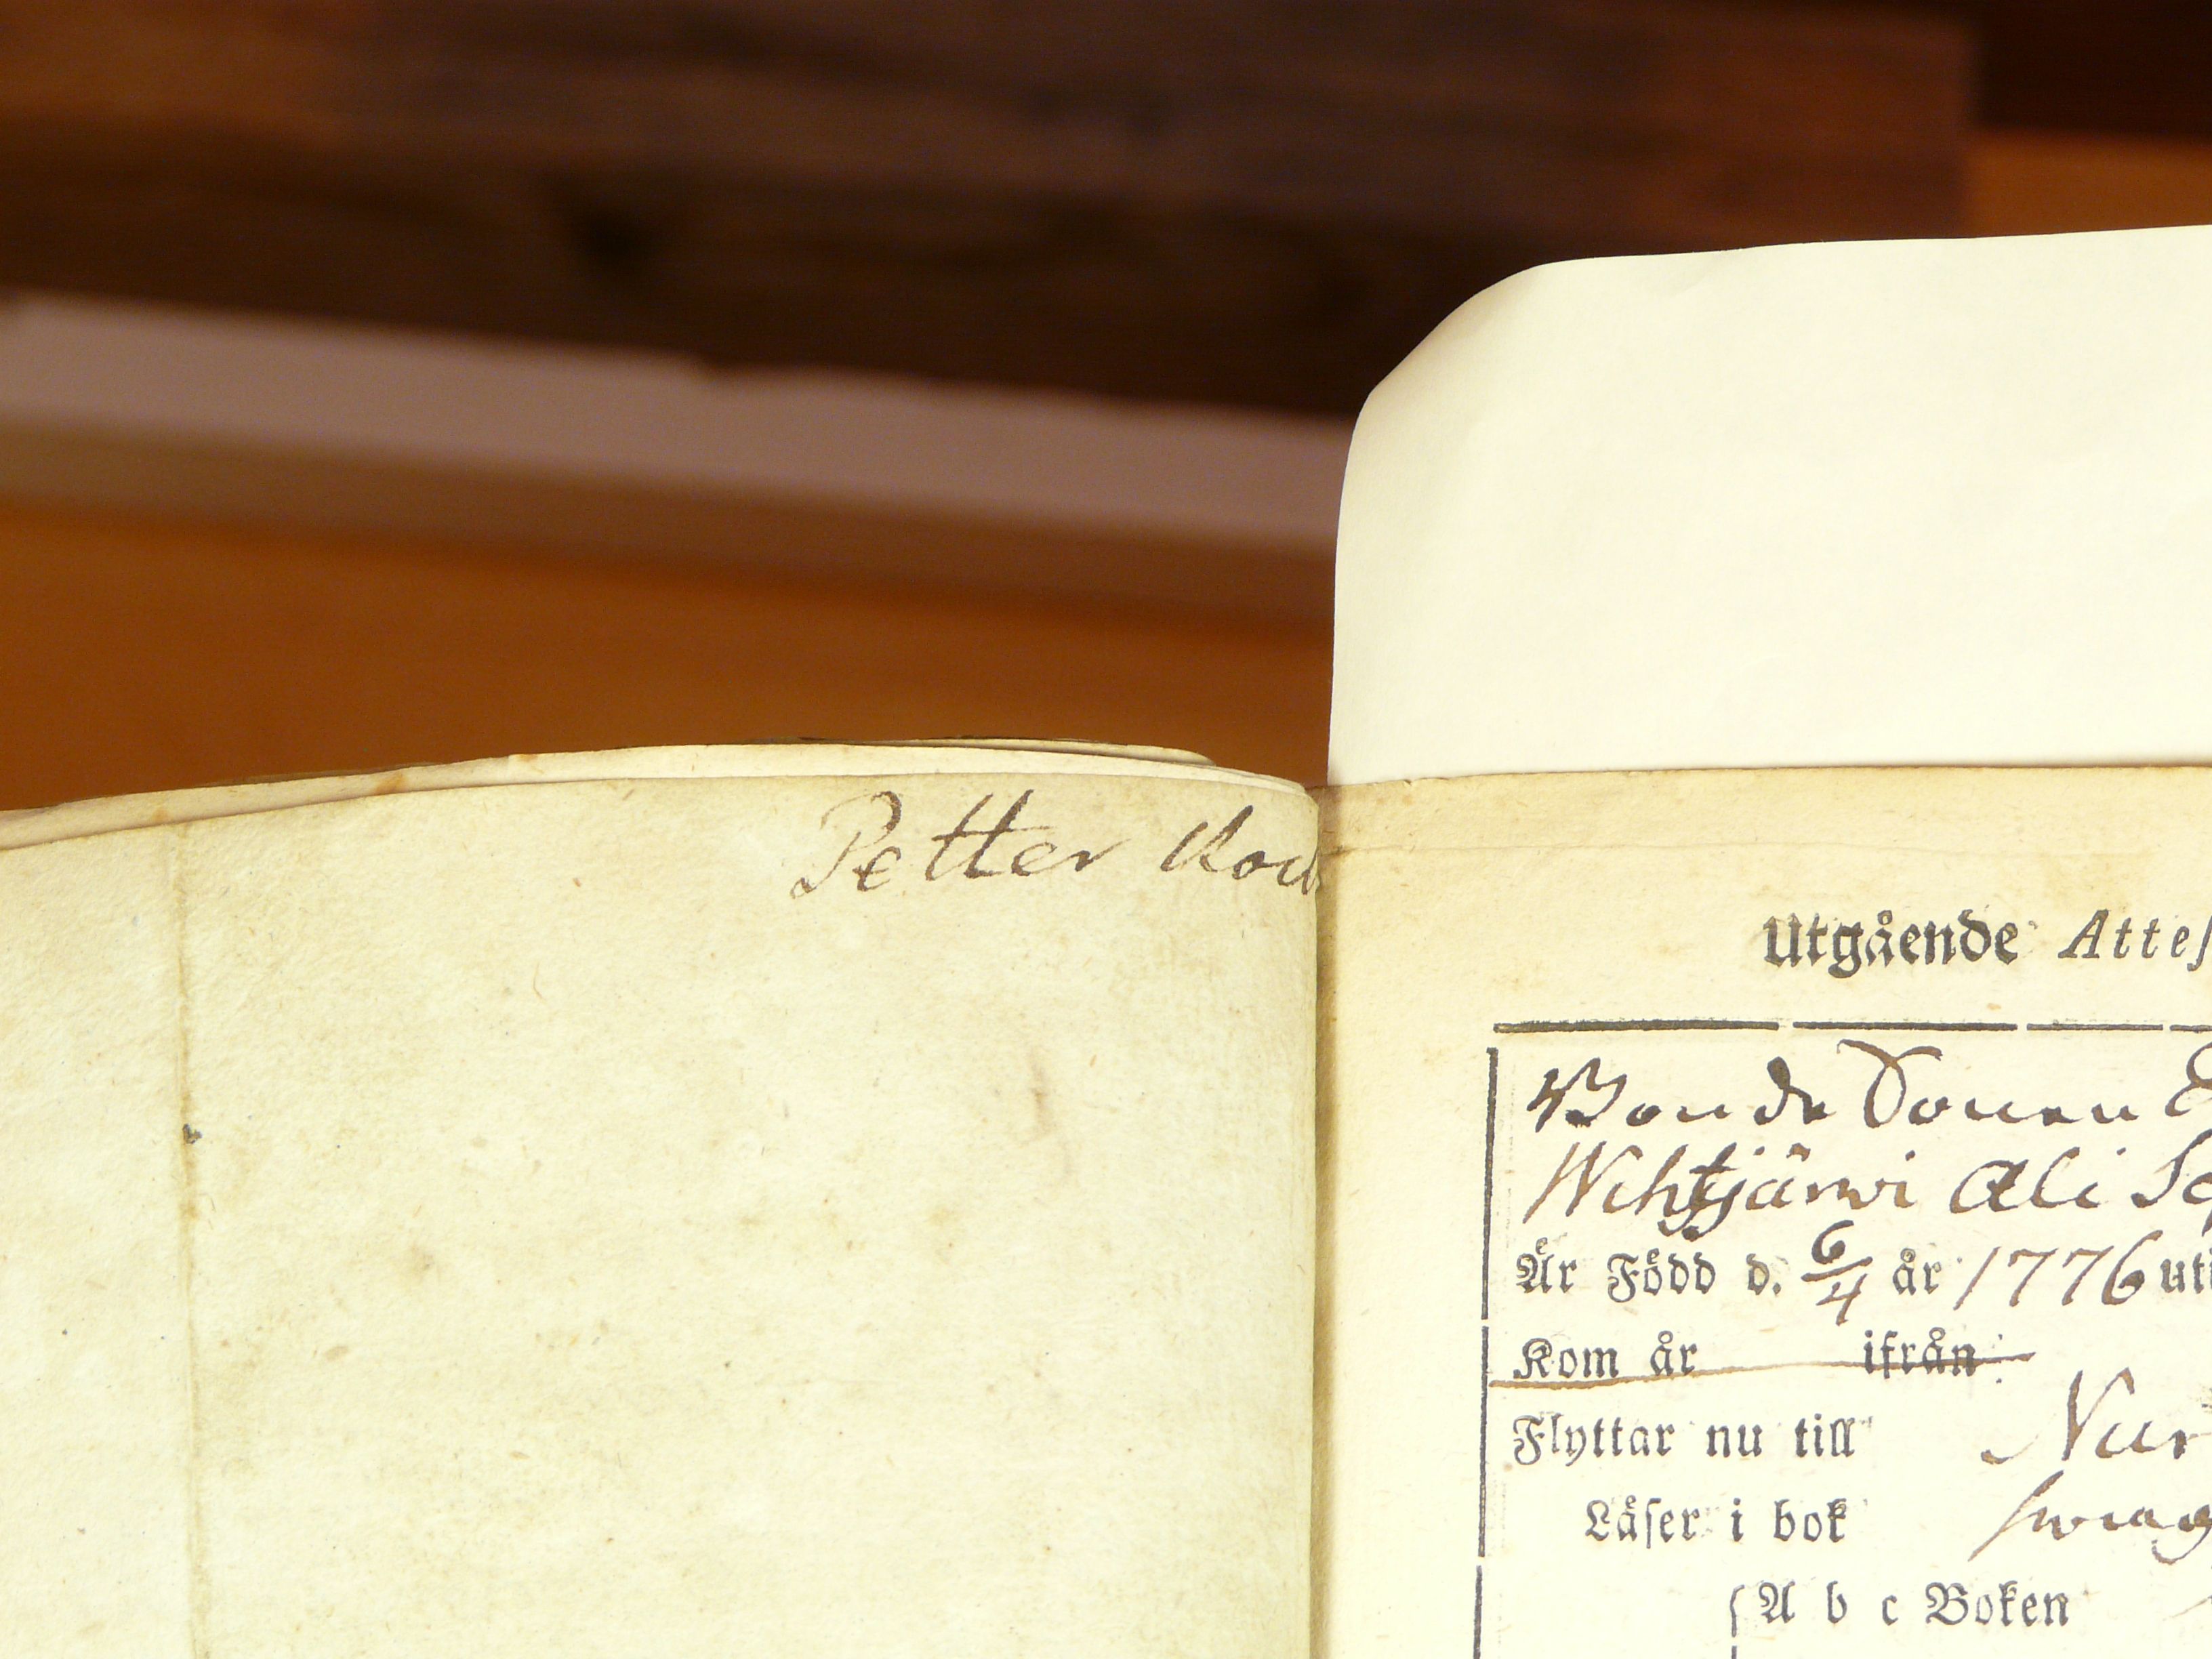 Petter Kock
Utgående Attes
Bonde Sonen E
Wihtjärwi Ali Se
Är Född d. 6/4 år 1776 uti
Kom år ifrån
Flyttar nu till Nur
Läser i bok swag
A b c Boken